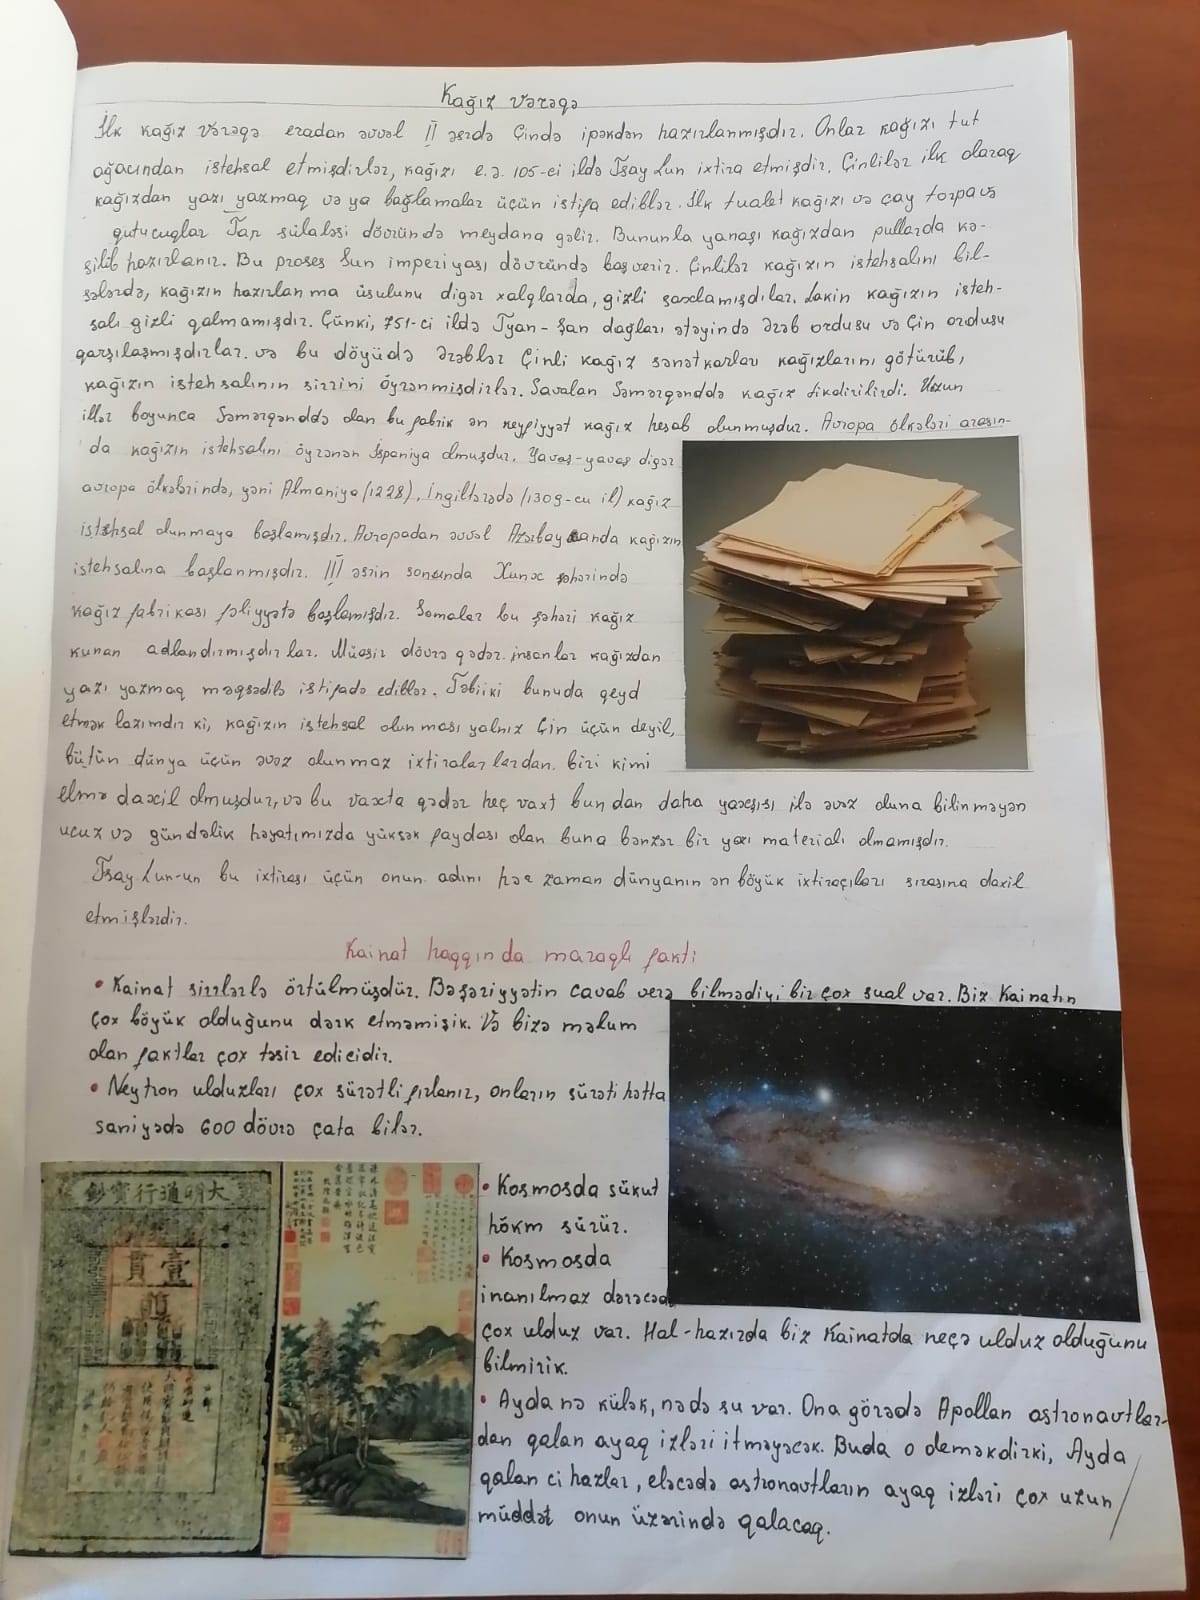 Kağız vərəqə
İlk kağız vərəqə eradan əvvəl II əsrdə Çində ipəkdən hazırlanmışdır. Onlar kağızı tut
ağacından istehsal etmişdirlər, kağızı e.ə. 105-ci ildə Tsay Lun ixtira etmişdir. Çinlilər ilk olaraq
kağızdan yazı yazmaq və ya bağlamalar üçün istifa ediblər. İlk tualet kağızı və çay torpavə
qutucuqlar Tan sülaləsi dövründə meydana gəlir. Bununla yanaşı kağızdan pullarda kə-
silib hazırlanır. Bu proses Sun imperiyası dövründə baş verir. Çinlilər kağızın istehsalını bil-
sələrdə, kağızın hazırlanma üsulunu digər xalqlarda, gizli saxlamışdılar. Lakin kağızın isteh-
salı gizli qalmamışdır. Çünki, 751-ci ildə Tyan-Şan dağları ətəyində ərəb ordusu və Çin ordusu
qarşılaşmışdırlar. və bu döyüdə ərəblər Çinli kağız sənətkarları kağızlarını götürüb,
kağızın istehsalının sirrini öyrənmişdirlər. Savalan Səmərqənddə kağız tikdirilirdi. Uzun
illər boyunca Səmərqənddə olan bu fabrik ən keyfiyyət kağız hesab olunmuşdur. Avropa ölkələri arasın-
da kağızın istehsalını öyrənən İspaniya olmuşdur. Yavaş-yavaş digər
avropa ölkələrində, yəni Almaniya (1228), İngiltərədə (1309-cu il) kağız
istehsal olunmaya başlamışdır. Avropadan əvvəl Azərbaycanda kağızın
istehsalına başlanmışdır. III əsrin sonunda Xunəc şəhərində
kağız fabrikası fəliyyətə başlamışdır. Somalar bu şəhəri kağız
kunan adlandırmışdırlar. Müasir dövrə qədər insanlar kağızdan
yazı yazmaq məqsədilə istifadə ediblər. Təbiiki bunuda qeyd
etmək lazımdır ki, kağızın istehsal olunması yalnız Çin üçün deyil,
bütün dünya üçün əvəz olunmaz ixtiralarlardan biri kimi
elmə daxil olmuşdur, və bu vaxta qədər heç vaxt bundan daha yaxşısı ilə əvəz oluna bilinməyən
ucuz və gündəlik həyatımızda yüksək faydası olan buna bənzər bir yazı materialı olmamışdır.
Tsay Lun-un bu ixtirası üçün onun adını hər zaman dünyanın ən böyük ixtiraçıları sırasına daxil
etmişlərdir.
Kainat haqqında maraqlı fakti
• Kainat sirrlərlə örtülmüşdür. Bəşəriyyətin cavab verə bilmədiyi bir çox sual var. Biz Kainatın
çox böyük olduğunu dərk etməmişik. Və bizə məlum
olan faktlar çox təsir edicidir.
• Neytron ulduzları çox sürətli fırlanır, onların sürəti hətta
saniyədə 600 dövrə çata bilər.
大明通行寶鈔
壹貫
• Kosmosda sükut
hökm sürür.
• Kosmosda
inanılmaz dərəcədə
çox ulduz var. Hal-hazırda biz Kainatda neçə ulduz olduğunu
bilmirik.
• Ayda nə külək, nədə su var. Ona görədə Apollan astronavtlar-
dan qalan ayaq izləri itməyəcək. Buda o deməkdirki, Ayda
qalan cihazlar, eləcədə astronavtların ayaq izləri çox uzun
müddət onun üzərində qalacaq.